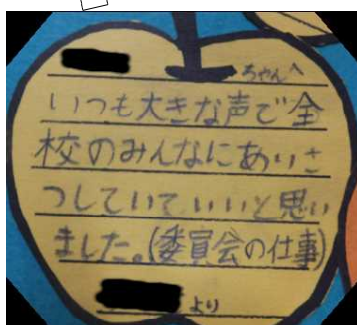 ちゃんへ
いつも大きな声で全
校のみんなにあいさ
つしていて、いいと思い
ました。(委員会の仕事)
より